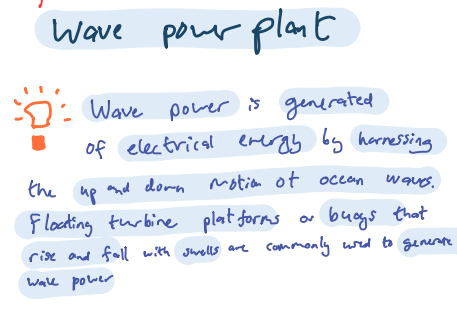 Wave power plant
Wave power is generated
of electrical energy by harnessing
the up and down motion of ocean waves.
Floating turbine platforms or buoys that
rise and fall with swells are commonly used to generate
wave power